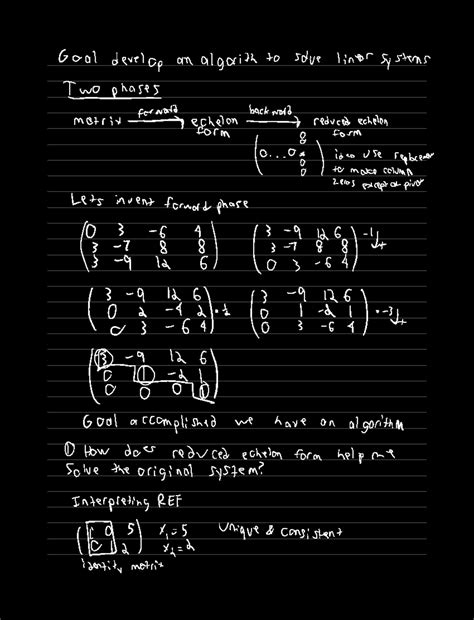 Goal develop an algorith to solve linear systems
Two phases
matrix forward → echelon form backward → reduced echelon form
(0...0 0 0 0 0) idea use replacement to make column zeros except at pivot
Lets invent forward phase
(0 3 -6 4
3 -7 8 8
3 -9 12 6)
(3 -9 12 6
3 -7 8 8
0 3 -6 4) -1
(3 -9 12 6
0 2 -4 2
0 3 -6 4) · ½
(3 -9 12 6
0 1 -2 1
0 3 -6 4) · -3
(3 -9 12 6
0 1 -2 1
0 0 0 1)
Goal accomplished we have an algorithm
① How does reduced echelon form help me
Solve the original system?
Interpreting REF
(1 0 5
0 1 2)
x₁=5
x₂=2
Unique & Consistent
identity matrix